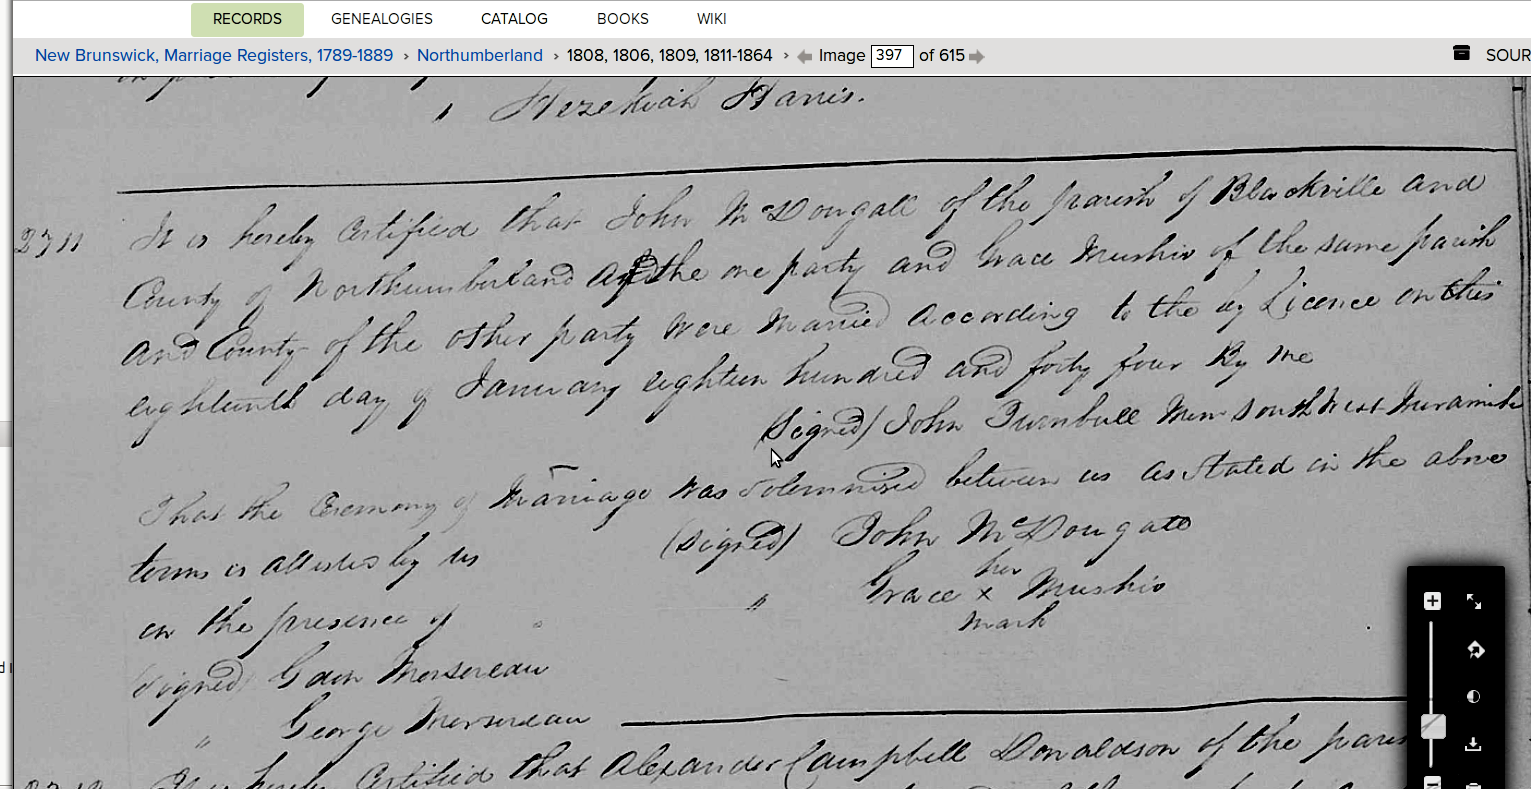 RECORDS GENEALOGIES CATALOG BOOKS WIKI
New Brunswick, Marriage Registers, 1789-1889 › Northumberland › 1808, 1806, 1809, 1811-1864 › Image 397 of 615 SOUR
" Hezekiah Harris.
2711 It is hereby Certified that John McDougall of the parish of Blackville and
County of Northumberland of the one party and Grace Mushie of the same parish
and County of the other party were Married according to the by Licence on this
eighteenth day of January eighteen hundred and forty four By Me
(Signed) John Turnbull Min South West Miramichi
That the Ceremony of Marriage was Solemnised between us as Stated in the above
terms is attested by us (Signed) John McDougall
her
" Grace x Mushie
mark
in the presence of
Signed Gain Mersereau
" George Mersereau
It is hereby Certified that Alexander Campbell Donaldson of the paris